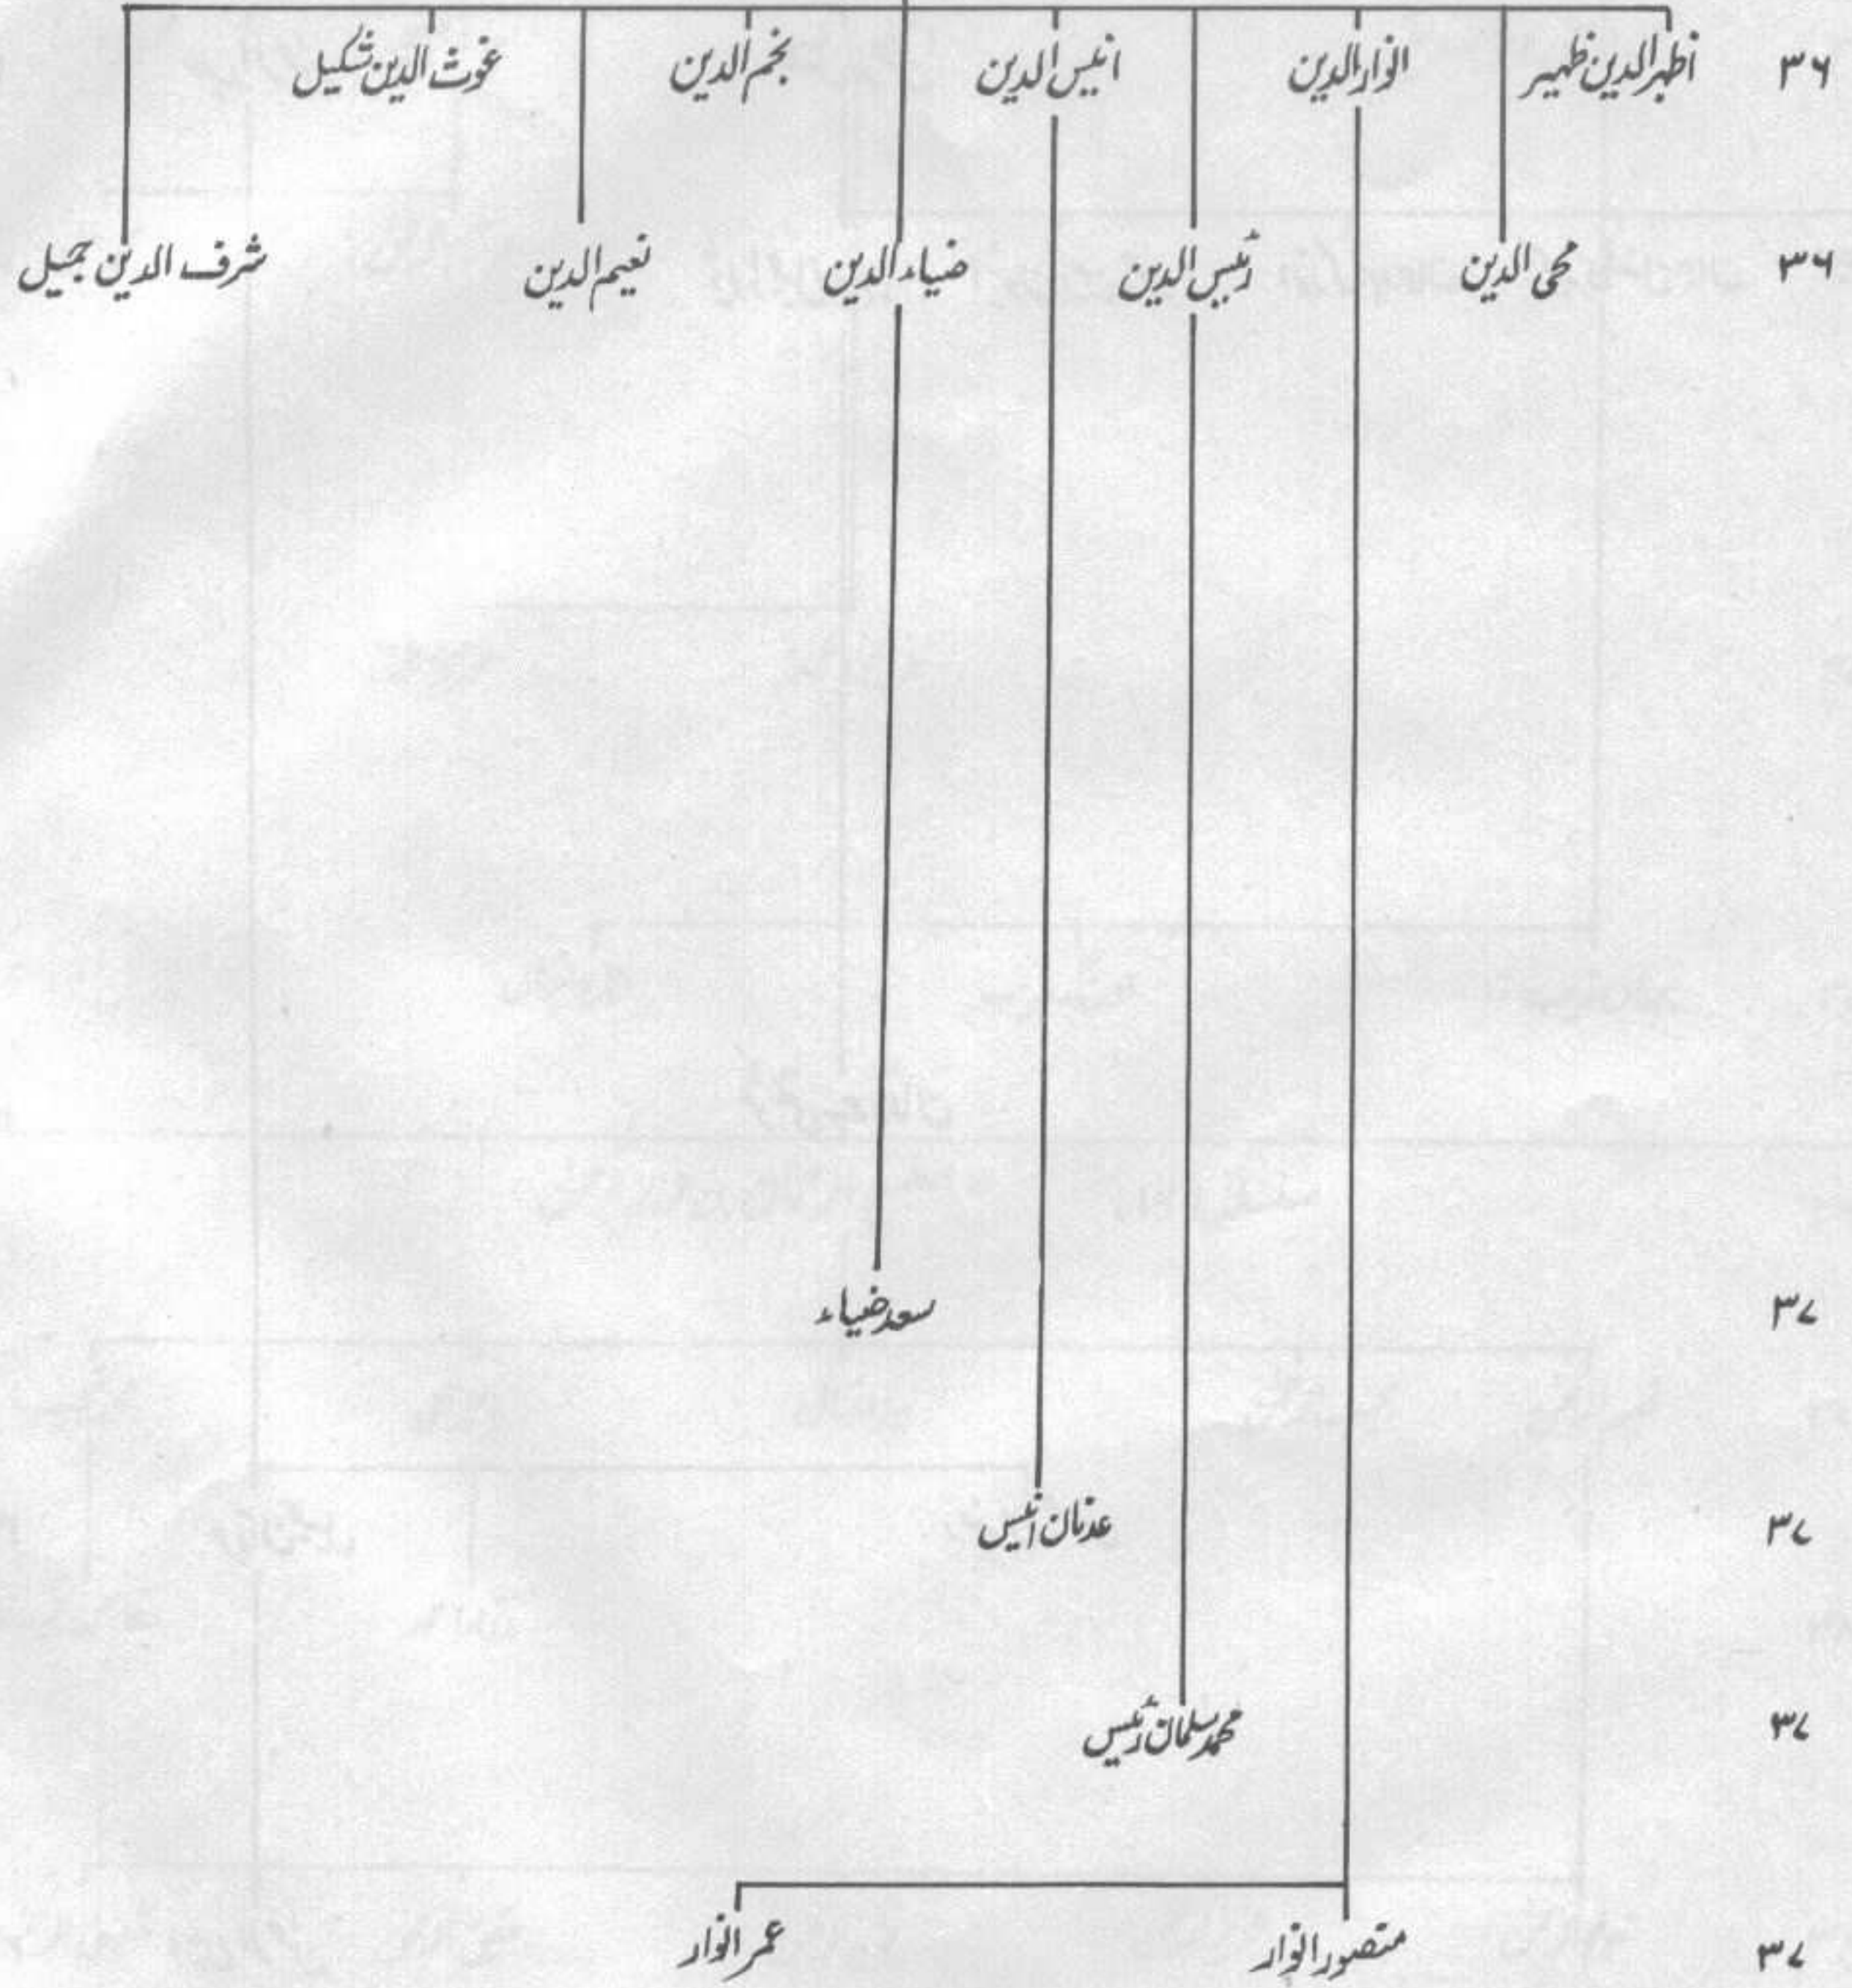 ۳۶ اظہر الدین ظہیر انوار الدین انیس الدین نجم الدین غوث الدین شکیل
۳۶ محی الدین رئیس الدین ضیاء الدین نعیم الدین شرف الدین جمیل
۳۷ سعد ضیاء
۳۷ عدنان انیس
۳۷ محمد سلمان رئیس
۳۷ منصور انوار عمر انوار